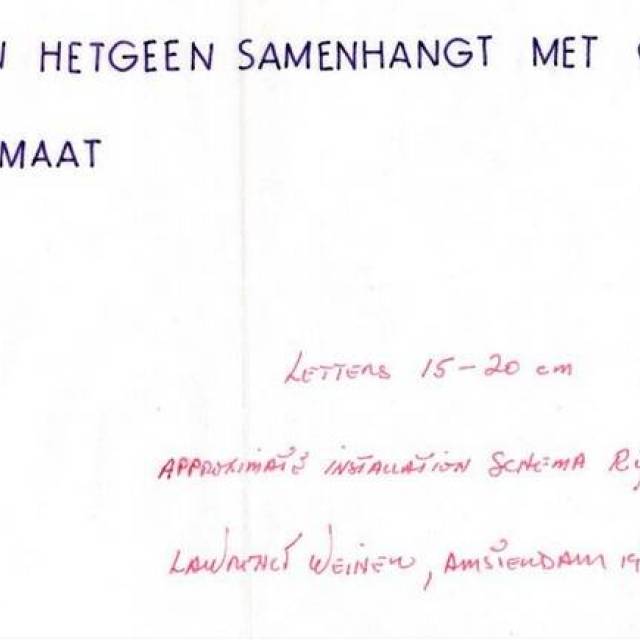 HETGEEN SAMENHANGT MET
MAAT
LETTERS 15-20 cm
APPROXIMATE INSTALLATION SCHEMA
LAWRENCE WEINER, AMSTERDAM 19